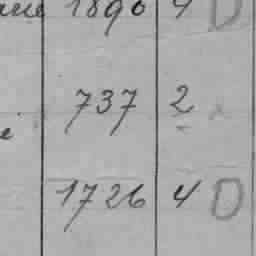 1890 4 D
737 2
1726 4 D